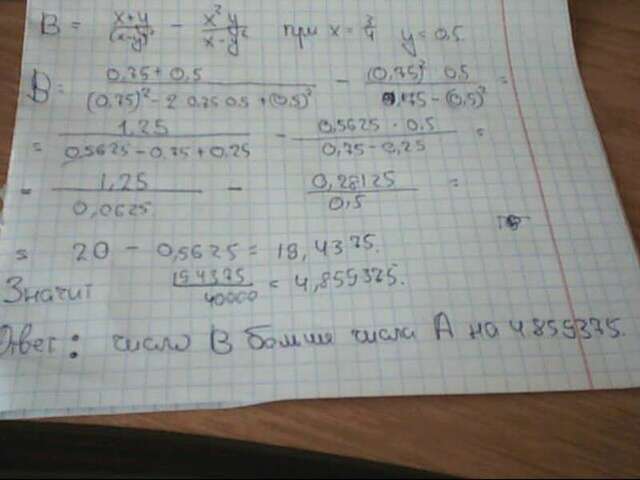 B = (x+y)/(x-y)² - x²y/(x-y²) при x = 3/4 y = 0,5.
B = (0,75 + 0,5)/((0,75)² - 2 0.75 0.5 + (0,5)²) - ((0,75)² 0,5)/(0,75 - (0,5)²) =
= 1,25/(0,5625 - 0,75 + 0,25) - (0,5625 · 0,5)/(0,75 - 0,25) =
= 1,25/0,0625 - 0,28125/0,5 =
= 20 - 0,5625 = 19,4375.
Значит 194375/40000 = 4,859375.
Ответ: число B больше числа A на 4859375.